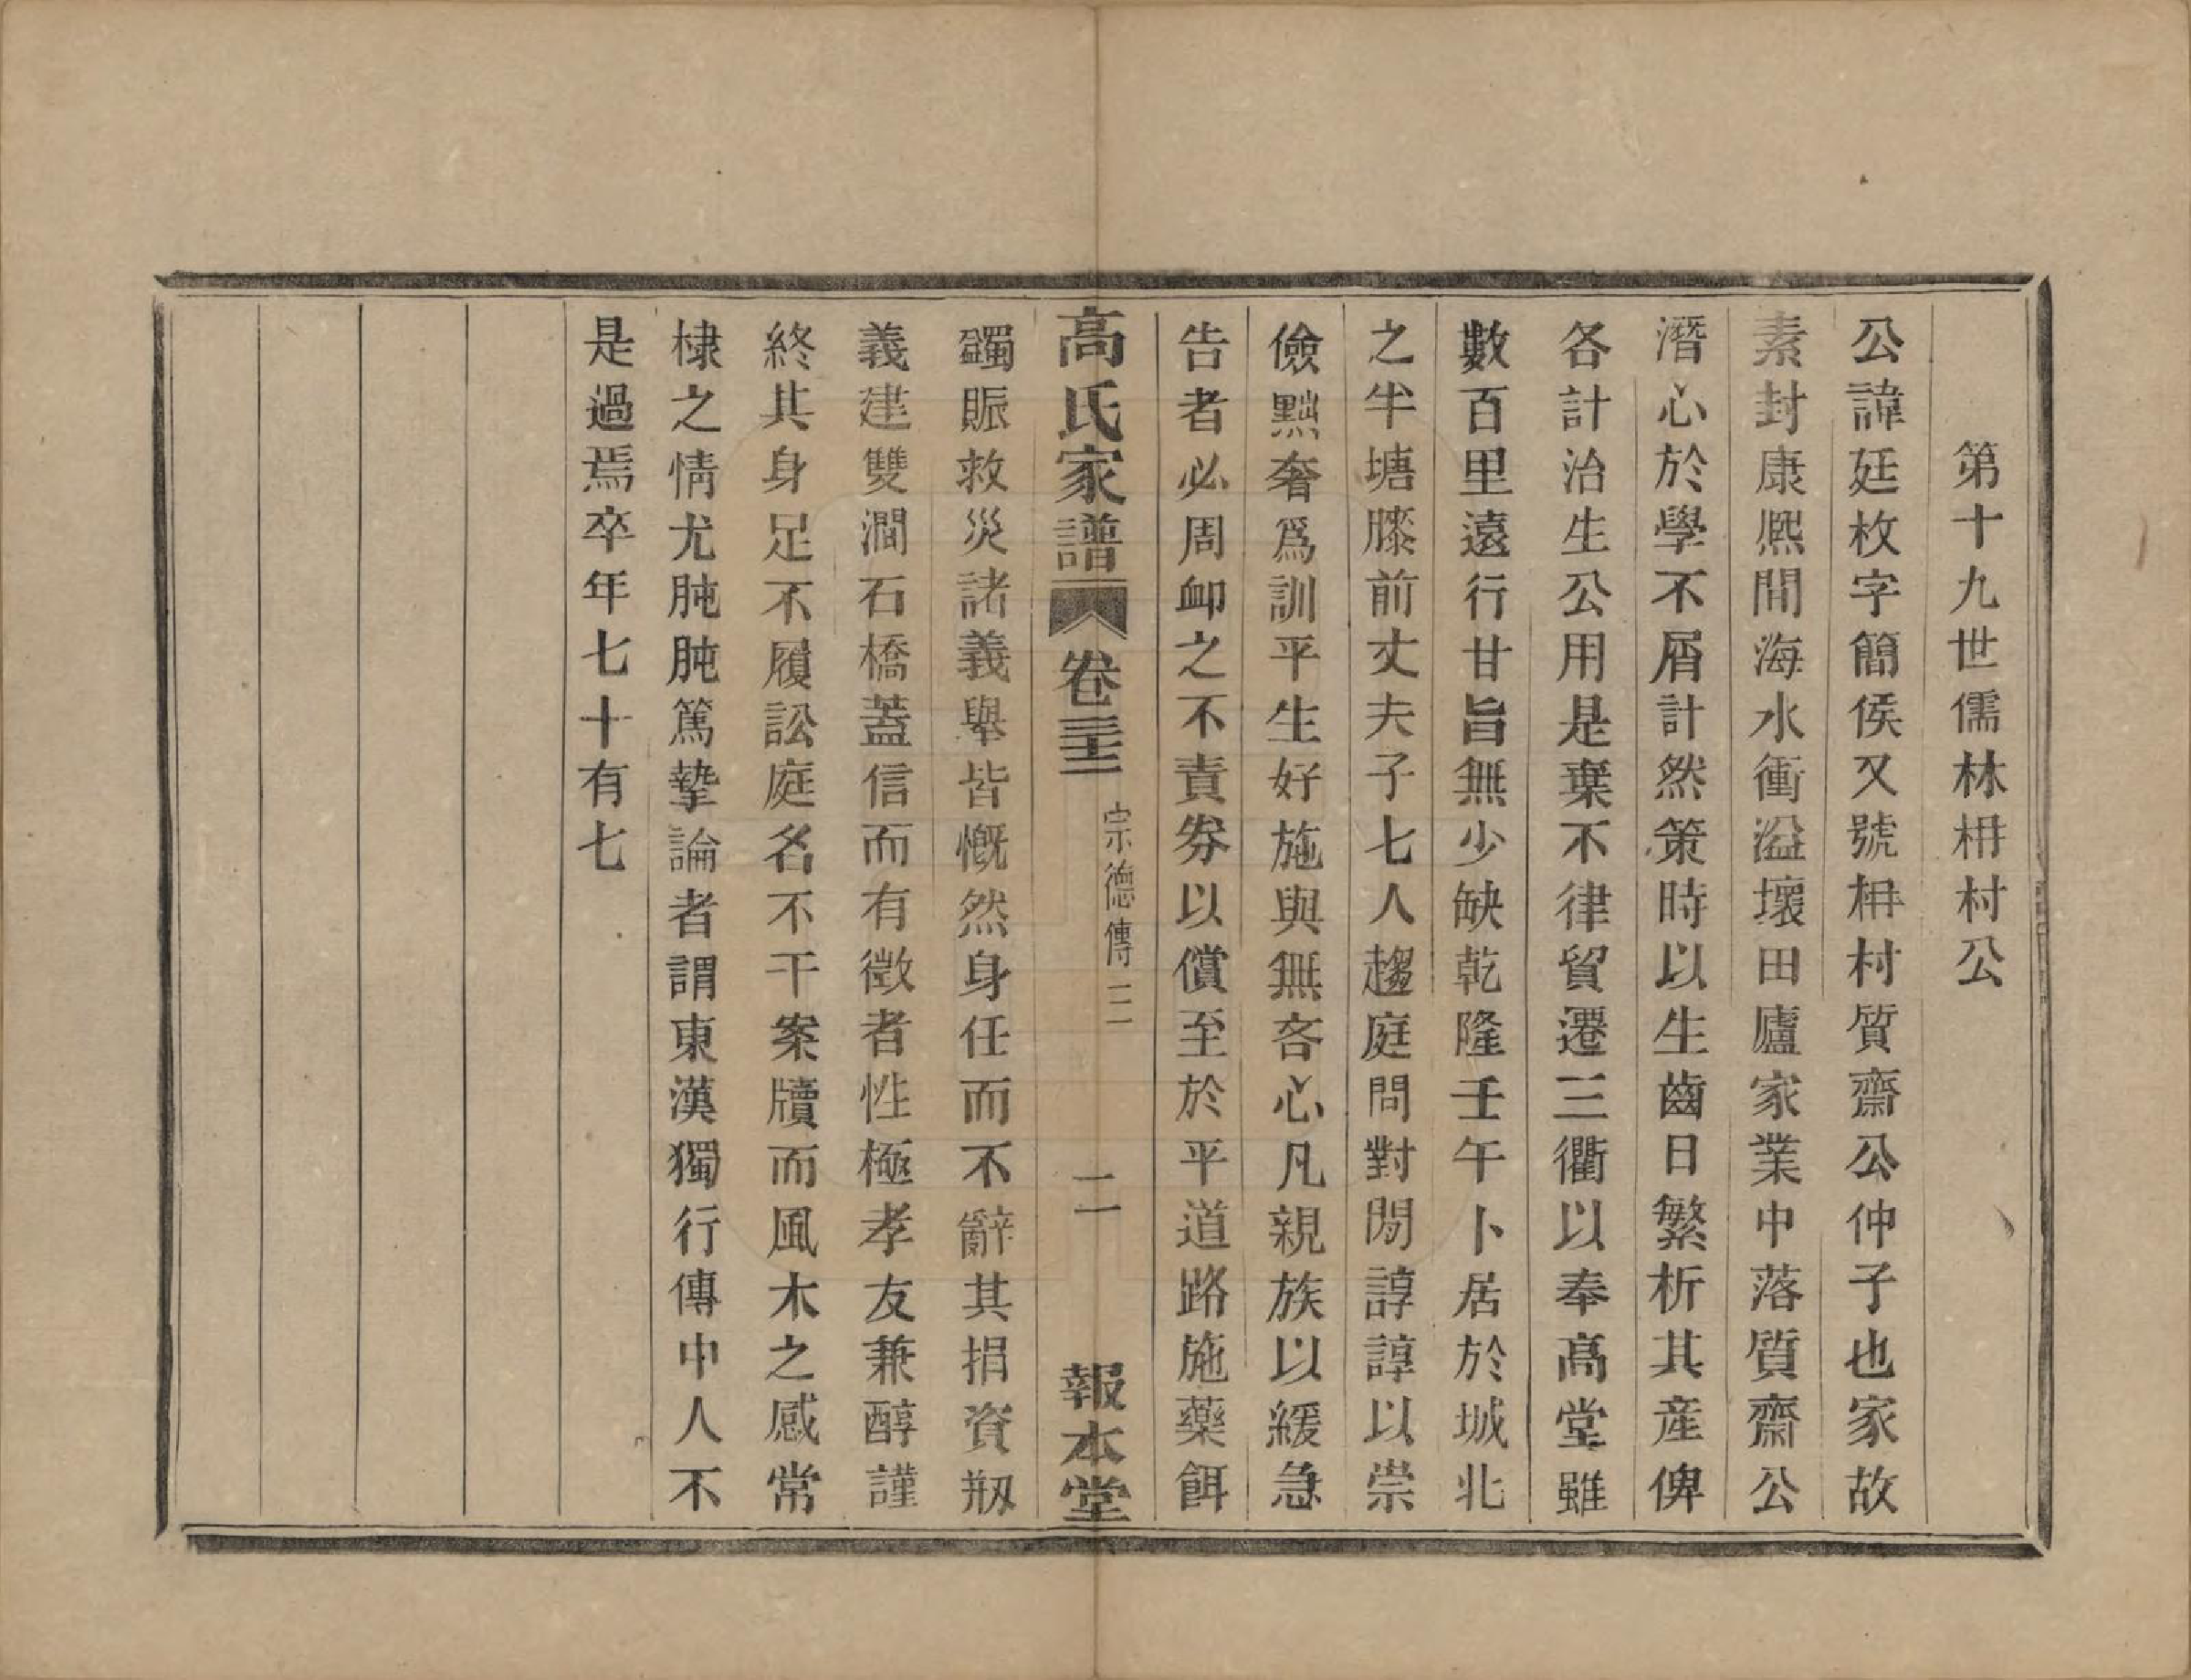 第十九世儒林枏村公
公諱廷枚字簡侯又號枏村質齋公仲子也家故
素封康熙間海水衝溢壞田廬家業中落質齋公
潛心於學不屑計然策時以生齒日繁析其產俾
各計治生公用是棄不律貿遷三衢以奉高堂雖
數百里遠行甘旨無少缺乾隆壬午卜居於城北
之半塘膝前丈夫子七人趨庭問對閒諄諄以崇
儉黜奢爲訓平生好施與無吝心凡親族以緩急
告者必周卹之不責券以償至於平道路施藥餌
高氏家譜 卷三十二 宗德傳三 二 報本堂
蠲賑救災諸義舉皆慨然身任而不辭其捐資剏
義建雙澗石橋蓋信而有徵者性極孝友兼醇謹
終其身足不履訟庭名不干案牘而風木之感常
棣之情尤肫肫篤摯論者謂東漢獨行傳中人不
是過焉卒年七十有七